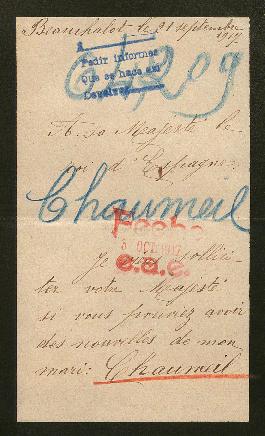 Beauchalot le 21 septembre
1917
A
Pedir informes
Que se hace así
64209
A sa Majesté le
roi d'Espagne
Chaumeil
Fecho
Je viens sollici-
ter votre Majesté
si vous pouvez avoir
des nouvelles de mon
mari: Chaumeil